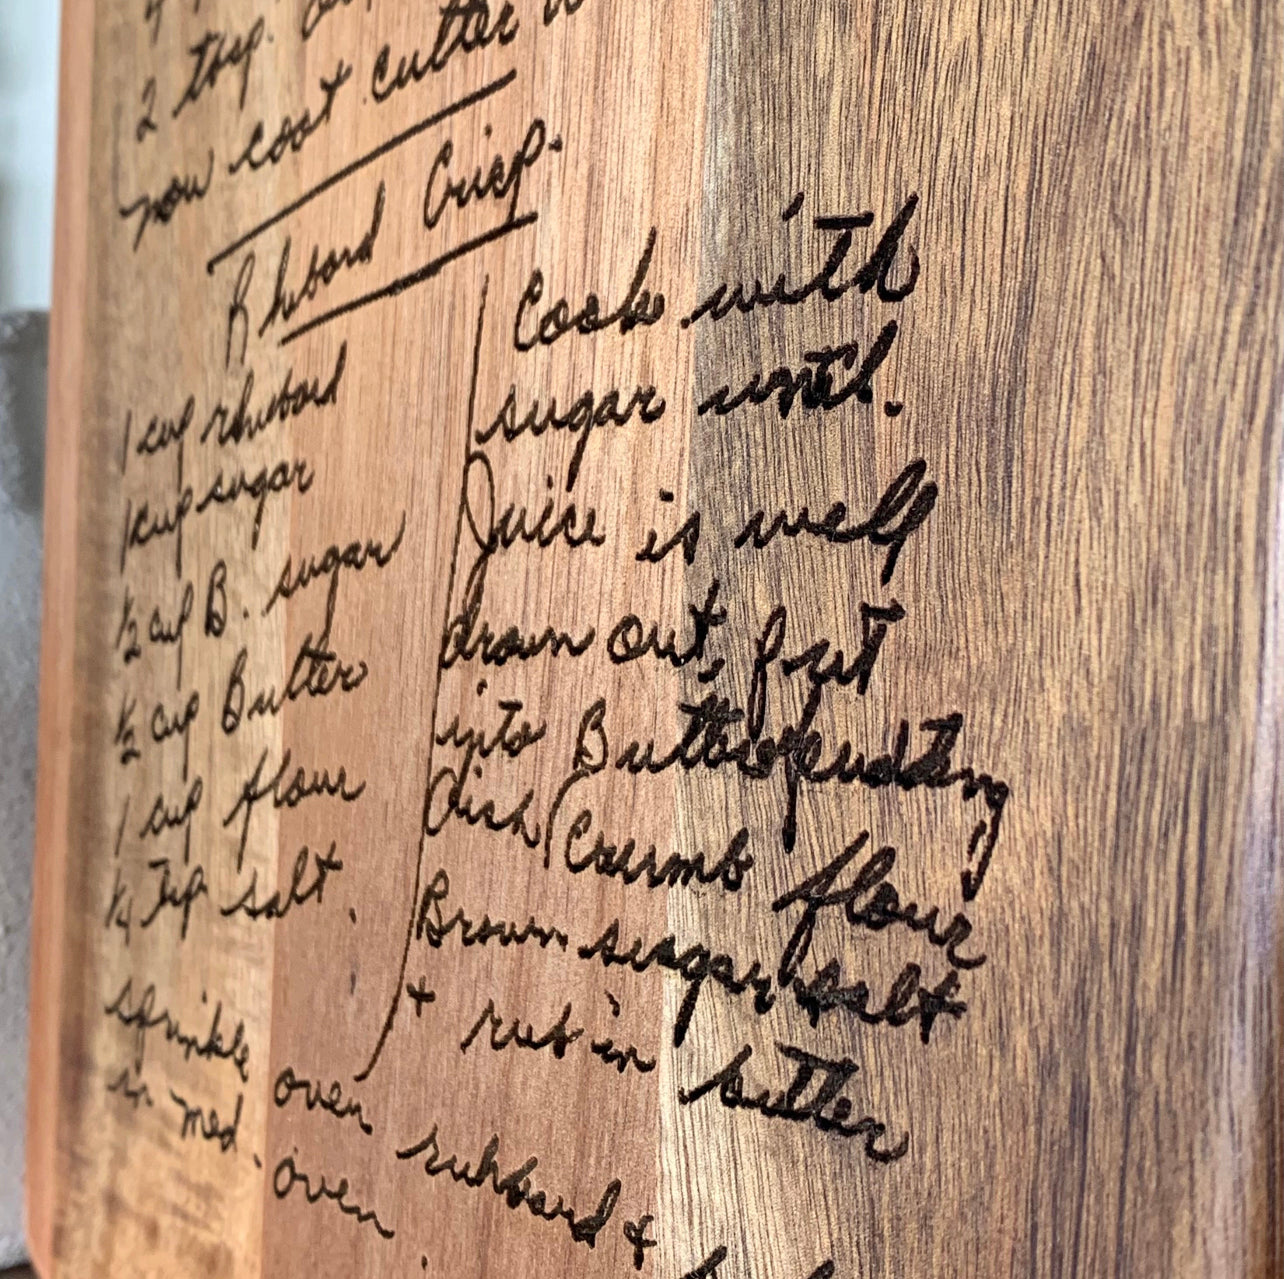 2 tbsp.
now coat cutter
Rhubard Crisp.
1 cup rhubard
1 cup sugar
½ cup B. sugar
½ cup Butter
1 cup flour
¼ Tsp salt.
Cook with
sugar until.
Juice is well
drawn out, put
into Butter pudding
dish Coumb flour
Brown sugar, salt
+ rub in butter
sprinkle over rubbard +
in med. oven.